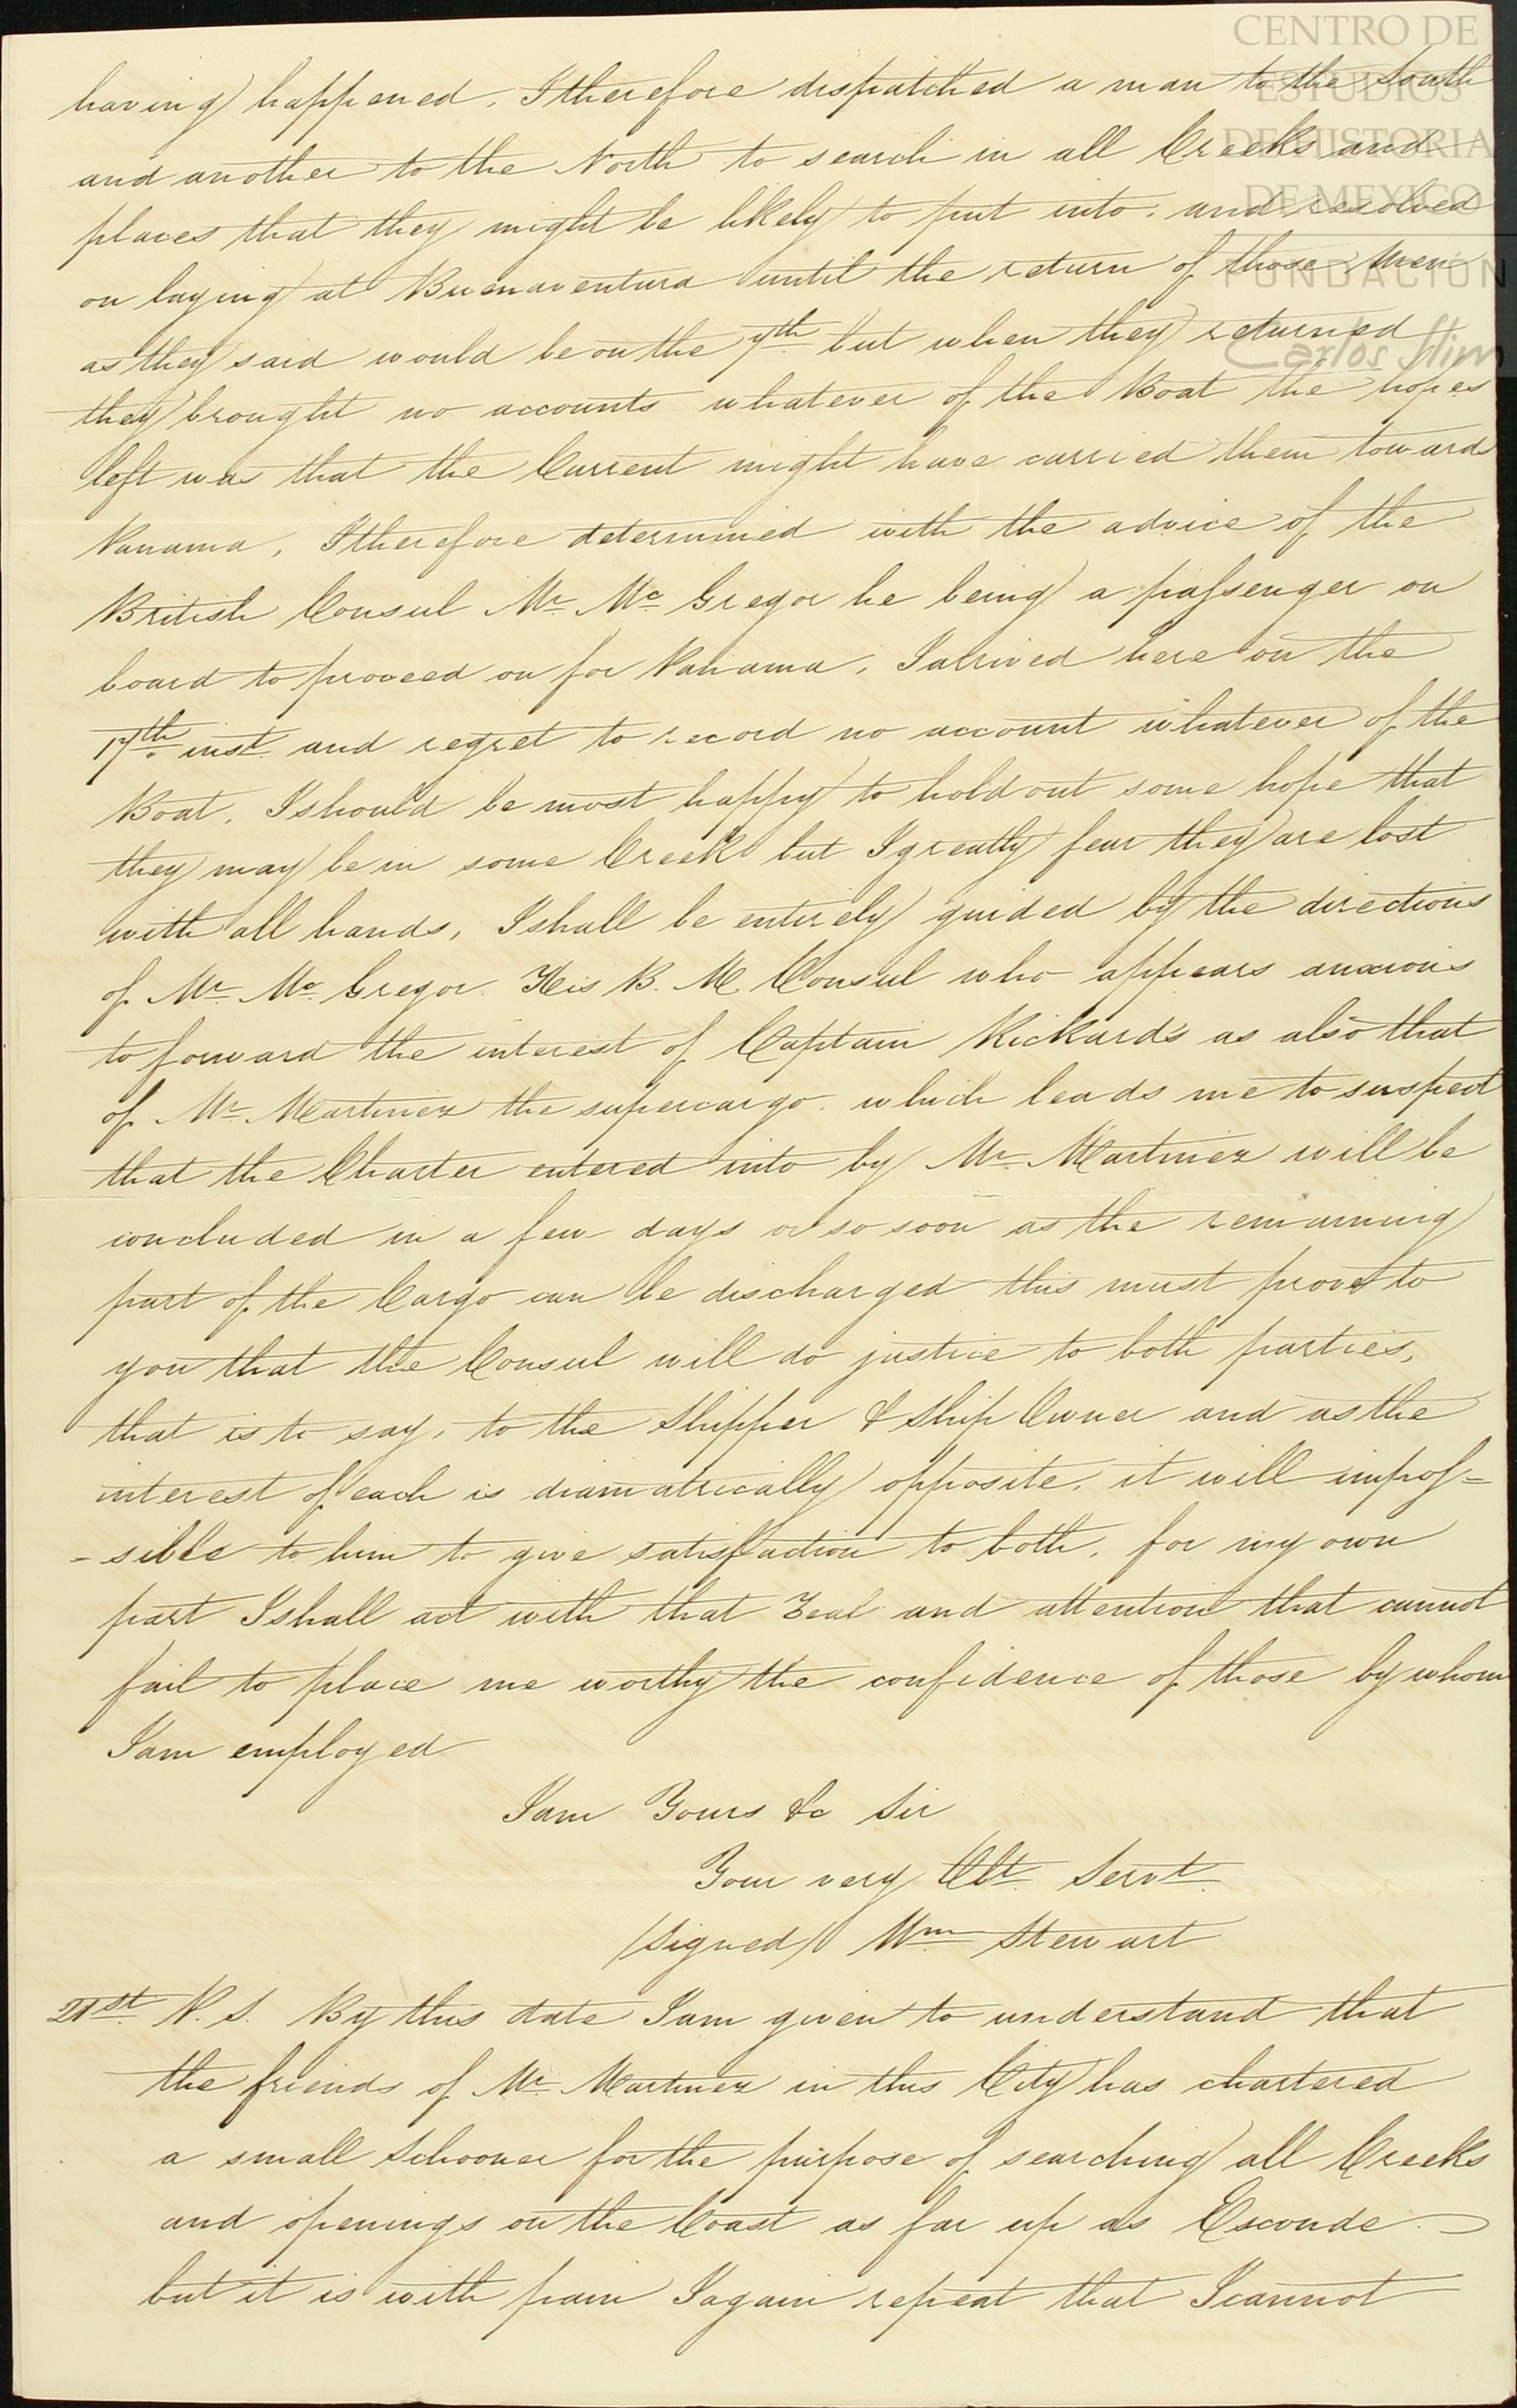 CENTRO DE
ESTUDIOS
DE HISTORIA
DE MEXICO
FUNDACIÓN
Carlos Slim
having happened. I therefore dispatched a man to the South
and another to the North to search in all Creeks and
places that they might be likely to put into. and resolved
on laying at Buenaventura until the return of those Men
as they said would be on the 7th. but when they returned
they brought no accounts whatever of the Boat the hopes
left was that the Current might have carried them towards
Panama, I therefore determined with the advice of the
British Consul Mr. Mc. Gregor he being a passenger on
board to proceed on for Panama, I arrived here on the
17th. inst. and regret to record no account whatever of the
Boat. I should be most happy to hold out some hope that
they may be in some Creek but I greatly fear they are lost
with all hands, I shall be entirely guided by the directions
of Mr. Mc. Gregor. His B. M. Consul who appears anxious
to forward the interest of Captain Rickards as also that
of Mr. Martinez the supercargo. which leads me to suspect
that the Charter entered into by Mr. Martinez will be
concluded in a few days or so soon as the remaining
part of the Cargo can be discharged this must prove to
you that the Consul will do justice to both parties,
that is to say, to the Shipper & Ship Owner and as the
interest of each is diamatrically opposite. it will impos=
-sible to him to give satisfaction to both. for my own
part I shall act with that Zeal and attention that cannot
fail to place me worthy the confidence of those by whom
I am employed
I am Yours &c Sir
Your very Obt. Servt.
/signed/ Wm. Stewart
21st. P. S. By this date I am given to understand that
the friends of Mr. Martinez in this City has chartered
a small Schooner for the purpose of searching all Creeks
and openings on the Coast as far up as Esconde.
but it is with pain I again repeat that I cannot